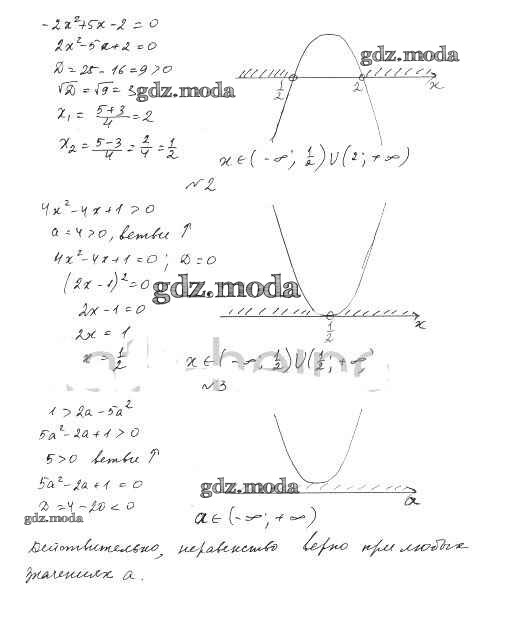 -2x²+5x-2=0
2x²-5x+2=0
D=25-16=9>0
√D=√9=3
x₁=(5+3)/4=2
x₂=(5-3)/4=2/4=1/2
gdz.moda
gdz.moda
1/2 2 x
x∈(-∞; 1/2)∪(2; +∞)
№2
4x²-4x+1>0
a=4>0, ветви ↑
4x²-4x+1=0; D=0
(2x-1)²=0
2x-1=0
2x=1
x=1/2
gdz.moda
1/2 x
x∈(-∞, 1/2)∪(1/2; +∞
№3
1>2a-5a²
5a²-2a+1>0
5>0 ветви ↑
5a²-2a+1=0
D=4-20<0
gdz.moda
gdz.moda
a
a∈(-∞; +∞)
Действительно, неравенство верно при любых
значениях a.